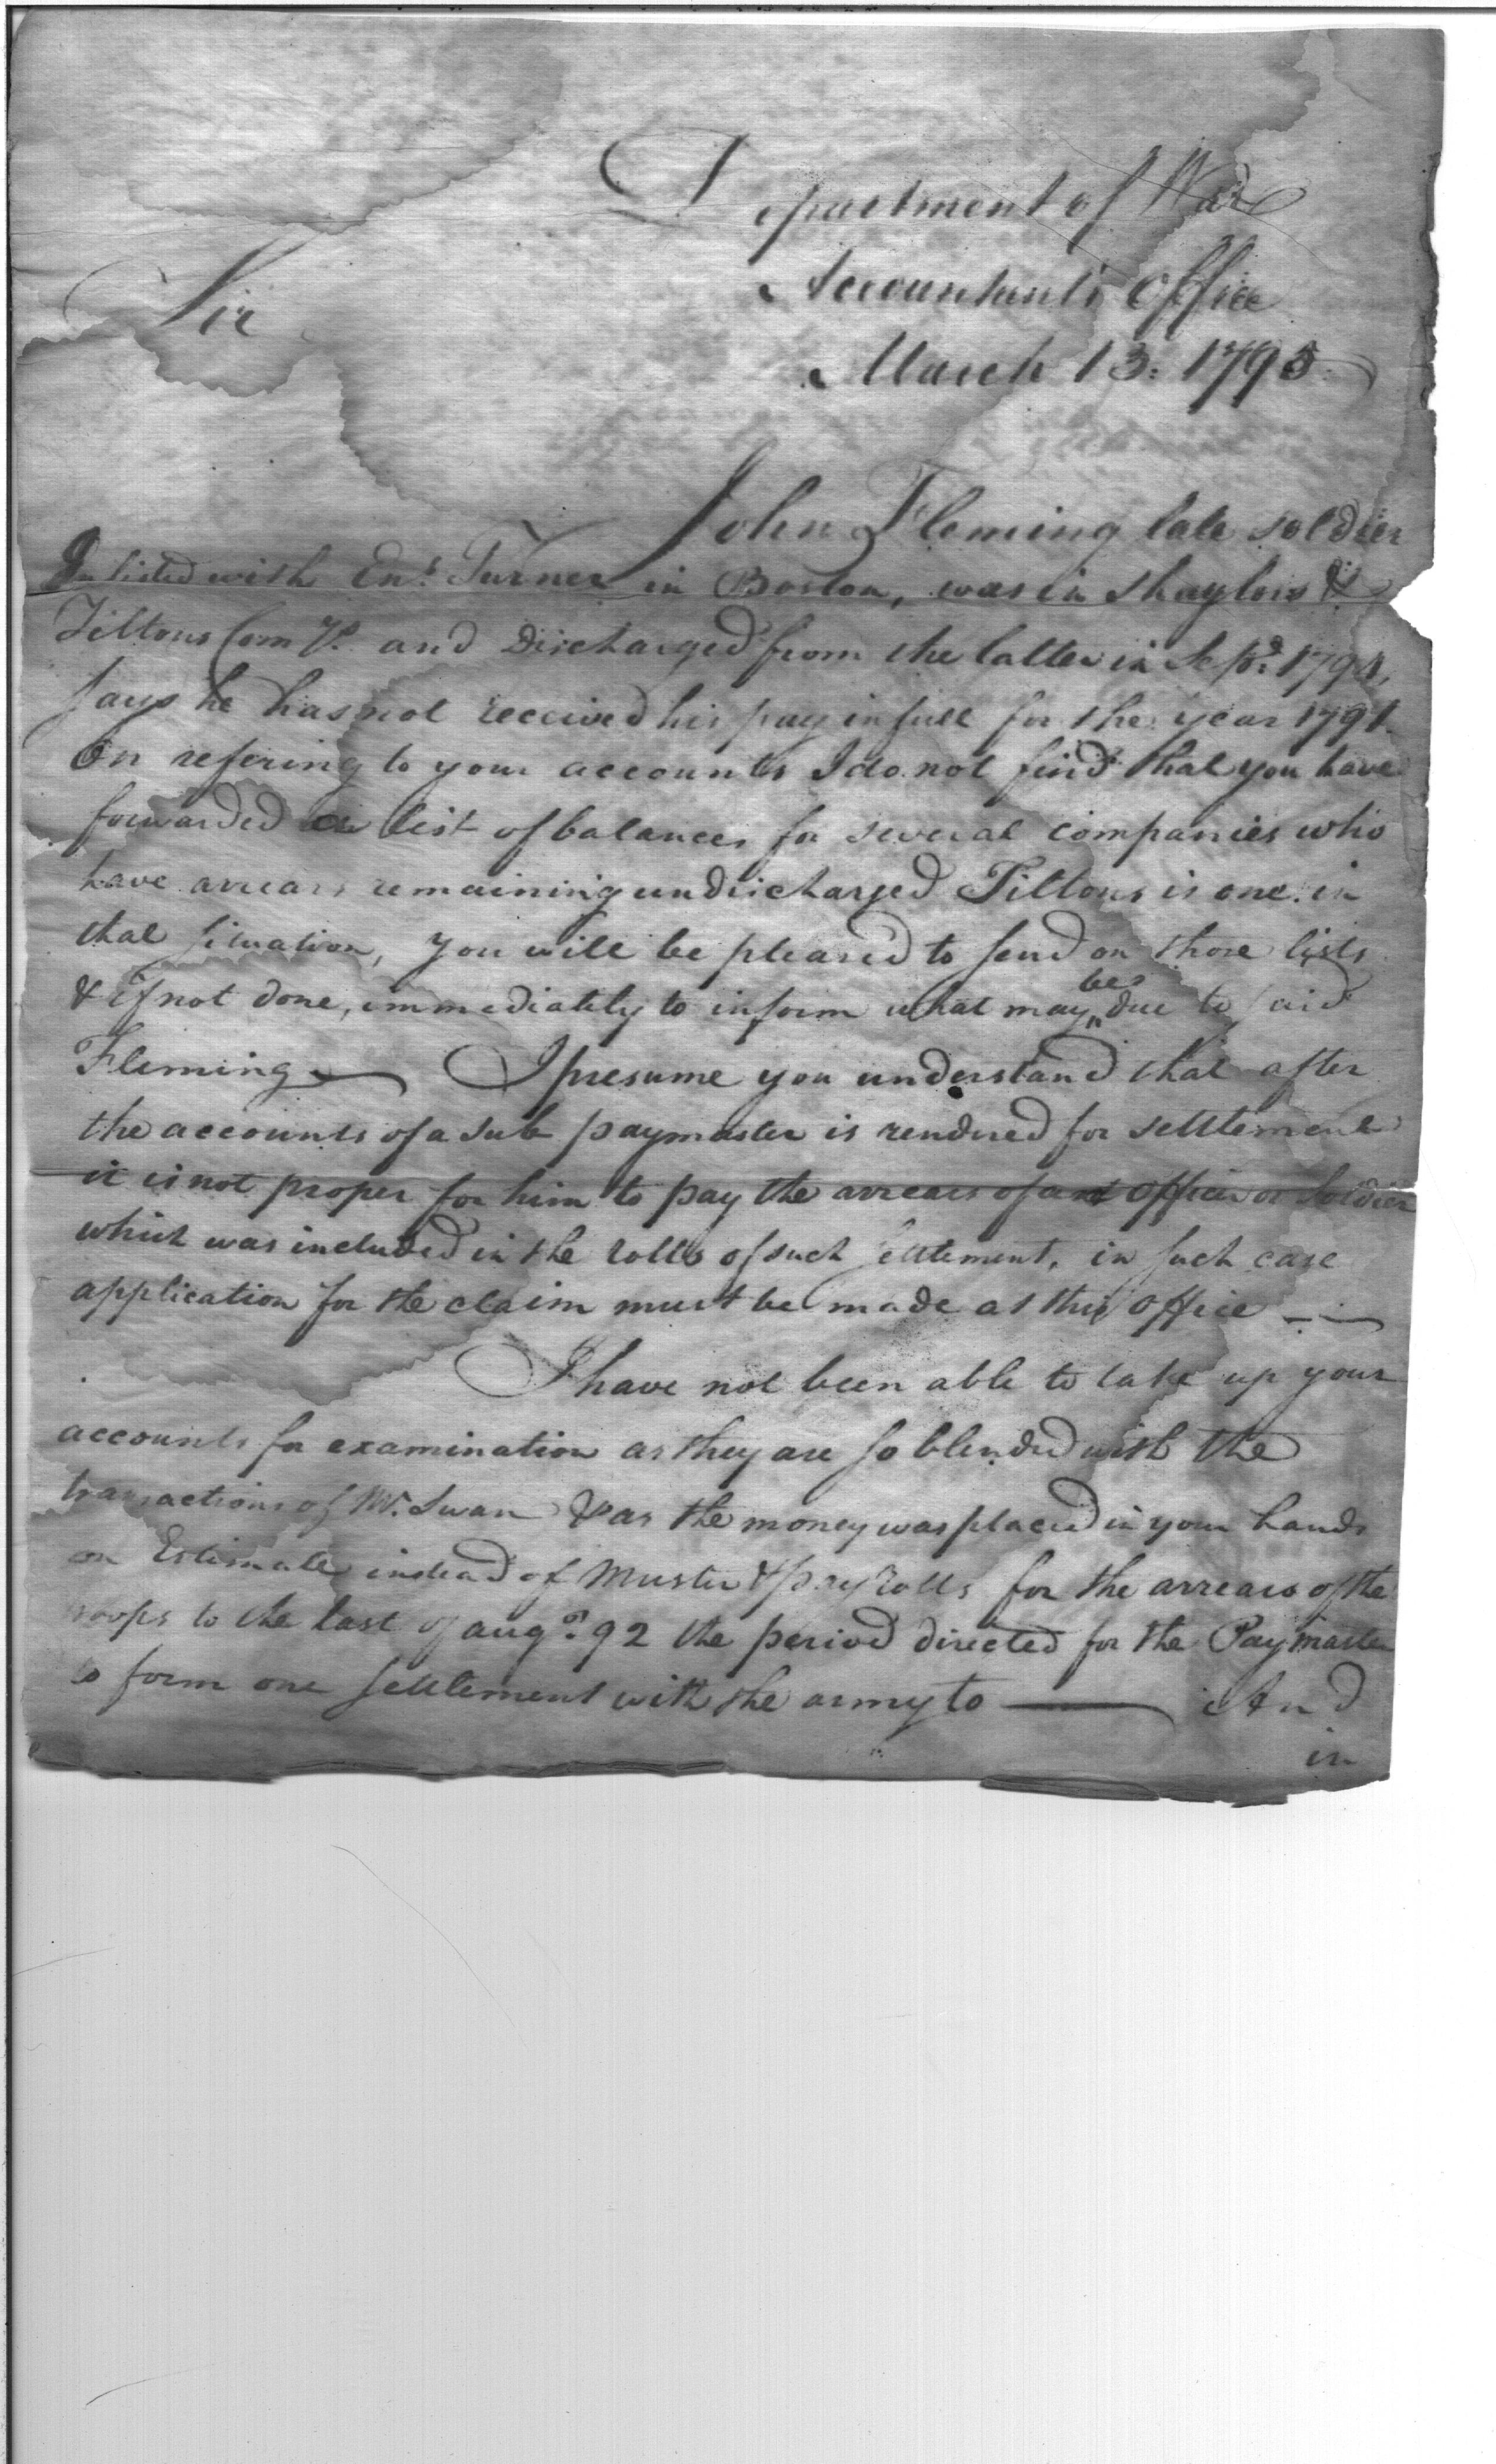 Department of War
Accountants Office
Sir
March 13. 1795
John Fleming late soldier
Inlisted with Ens. Turner in Boston, was in Shaylors &
Tiltons Comy. and Discharged from the latter in Sepr. 1794,
says he has not received his pay in full for the year 1791.
On refering to your accounts I do not find that you have
forwarded a list of balances for several companies who
have arrears remaining undischarged Tiltons is one in
that situation, you will be pleased to send on those lists
& if not done, immediately to inform what may be due to said
Fleming — I presume you understand that after
the accounts of a sub paymaster is rendered for settlement
it is not proper for him to pay the arrears of an officer or Soldier
which was included in the rolls of such settlement, in such case
application for the claim must be made at this office —
I have not been able to take up your
accounts for examination as they are so blended with the
transactions of Mr. Swan & as the money was placed in your hands
on Estimate instead of Muster & pay rolls for the arrears of the
troops to the last of augt. 92 the period directed for the Paymaster
to form one settlement with the army to — And
in